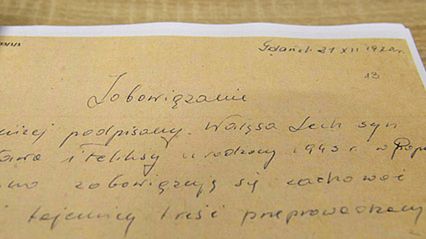 Gdańsk 21 XII 1970 r.
13
Zobowiązanie
podpisany. Wałęsa Lech syn
i Feliksy urodzony 1943 r. w
zobowiązuję się zachować
tajemnicy treść przeprowadzony